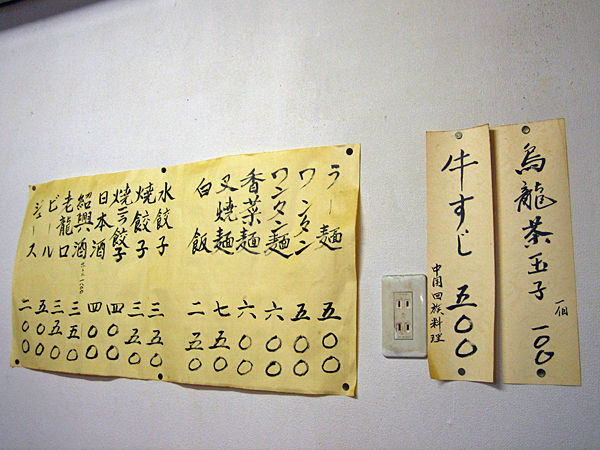 烏龍茶玉子 一個 一〇〇
牛すじ 五〇〇
中国回族料理
ラー麺 五〇〇
ワンタン 五〇〇
ワンタン麺 六〇〇
香菜麺 六〇〇
叉焼麺 七五〇
白飯 二五〇
水餃子 三五〇
焼餃子 三五〇
餃子 四〇〇
日本酒 四〇〇
紹興酒 三五〇
老龍口 三五〇
ビール 五〇〇
ジュース 二〇〇